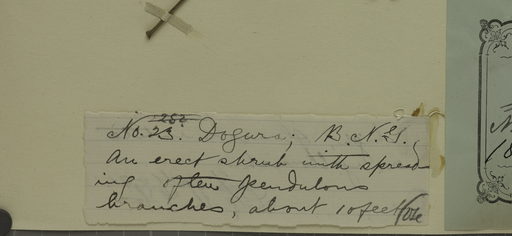 282
No. 23. Dogura; B.N.G.,
An erect shrub with spread-
ing often pendulous
branches, about 10 feet